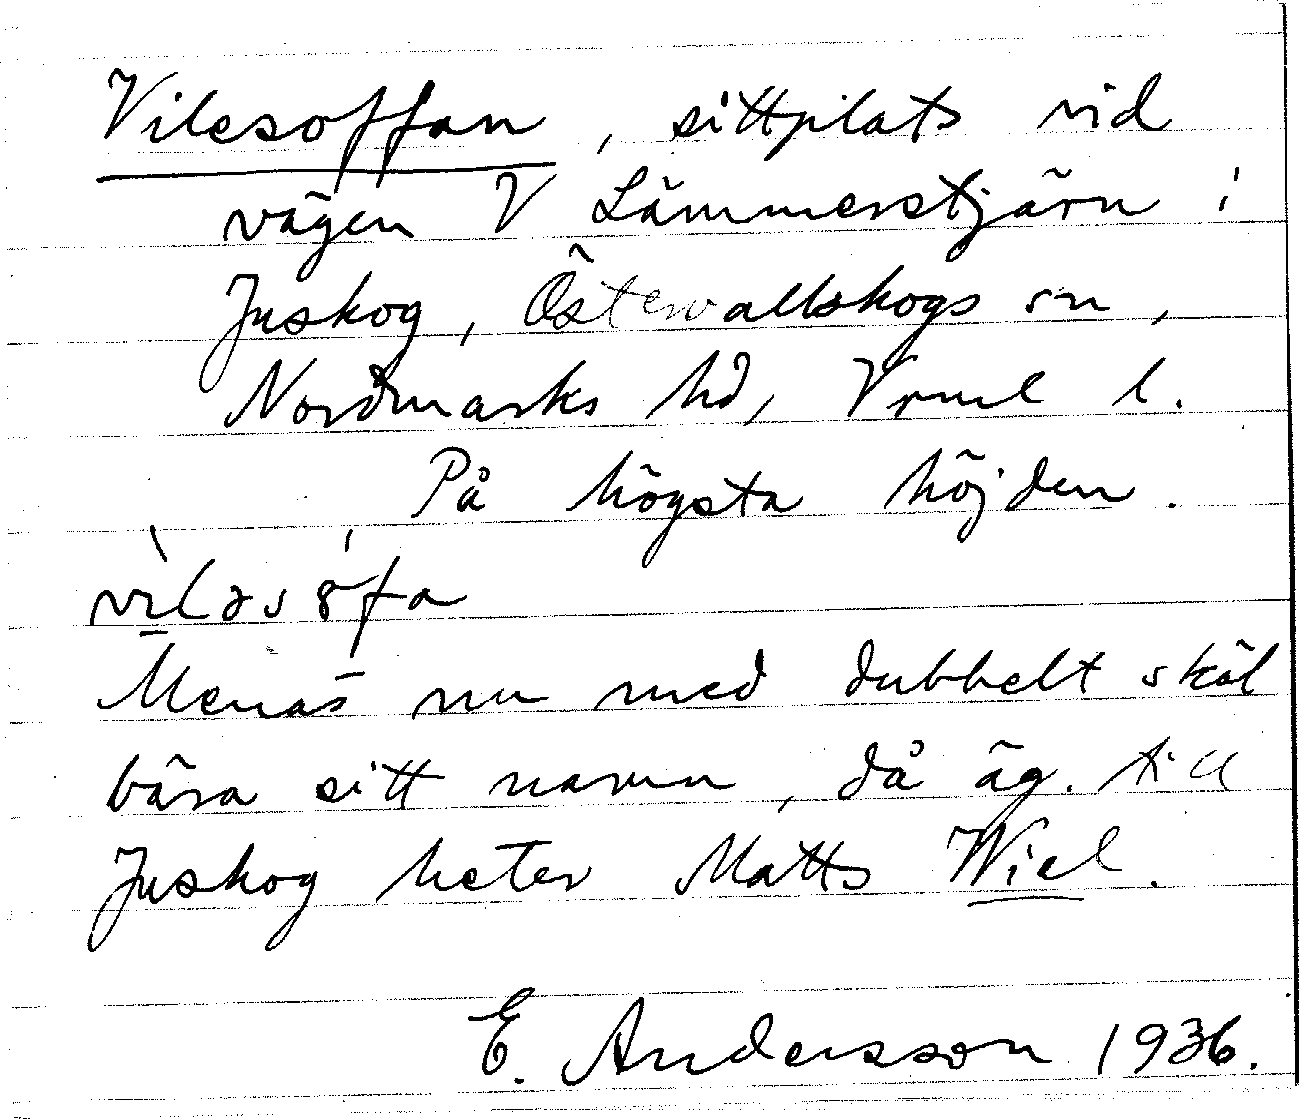 Vilesoffan, sittplats vid
vägen V Lämmerstjärn i
Juskog, Östervallskogs sn,
Nordmarks hd, Vrml l.
På högsta höjden.
Menas nu med dubbelt skäl
bära sitt namn, då äg. till
Juskog heter Matts Wiel.
E. Andersson 1936.